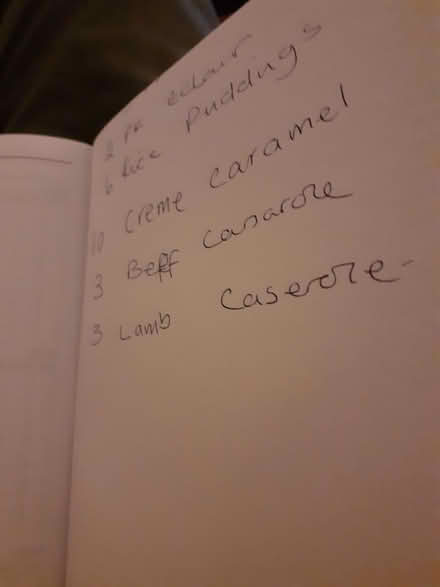 2 PK eclair
6 Rice Puddings
10 Creme Caramel
3 Beff Casarole
3 Lamb Caserole